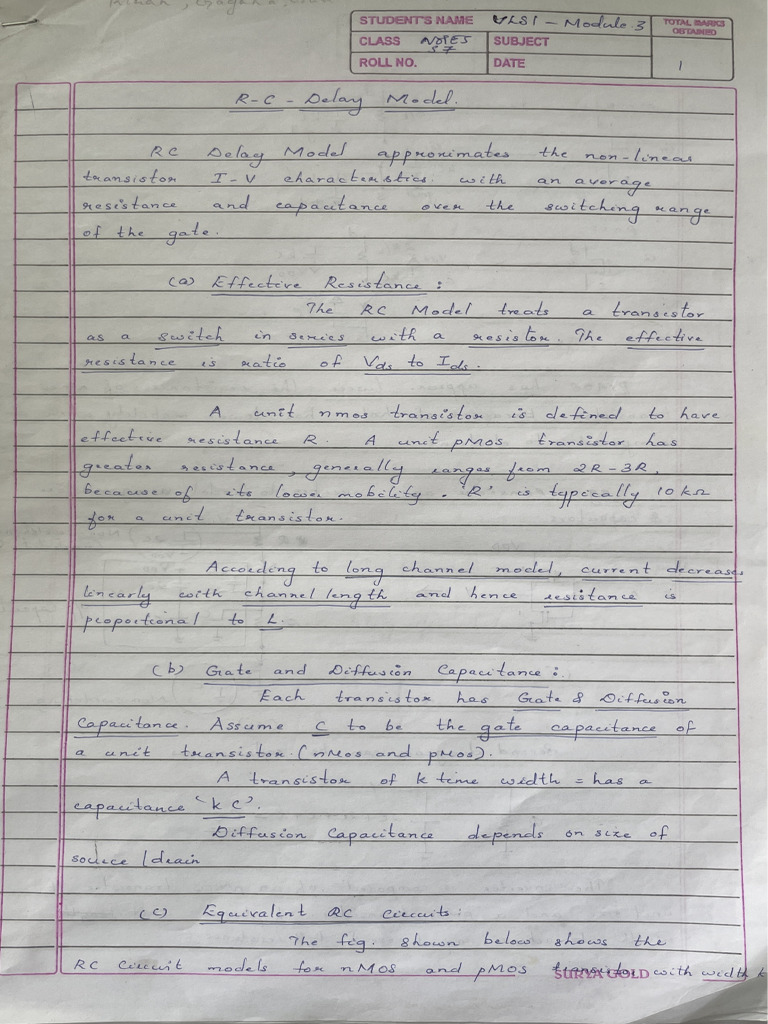 STUDENT'S NAME VLSI - Module 3 TOTAL MARKS OBTAINED
CLASS NOTES SUBJECT
S7
ROLL NO. DATE 1
R-C - Delay Model.
RC Delay Model approximates the non-linear
transistor I-V characteristics with an average
resistance and capacitance over the switching range
of the gate.
(a) Effective Resistance :
The RC Model treats a transistor
as a switch in series with a resistor. The effective
resistance is ratio of Vds to Ids.
A unit nmos transistor is defined to have
effective resistance R. A unit pMos transistor has
greater resistance, generally ranges from 2R-3R,
because of its lower mobility. 'R' is typically 10 kΩ
for a unit transistor.
According to long channel model, current decreases
linearly with channel length and hence resistance is
propotional to L.
(b) Gate and Diffusion Capacitance :.
Each transistor has Gate & Diffusion
Capacitance. Assume C to be the gate capacitance of
a unit transistor. (nMos and pMos).
A transistor of k time width = has a
capacitance 'k C'.
Diffusion Capacitance depends on size of
source / drain
(c) Equivalent RC circuits:
The fig. shown below shows the
RC circuit models for nMOS and pMOS transistor with width k
SURYA GOLD